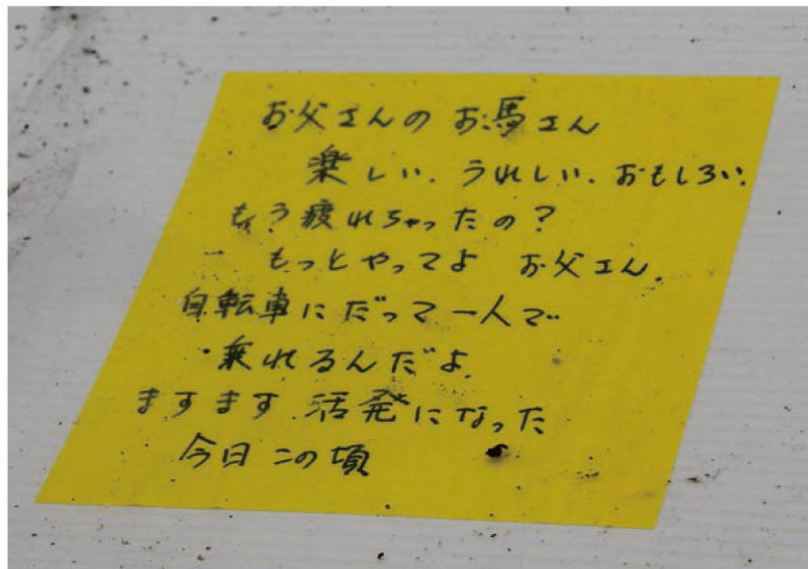 お父さんのお馬さん
楽しい．うれしい．おもしろい．
もう疲れちゃったの？
もっとやってよ お父さん．
自転車にだって一人で
乗れるんだよ．
ますます活発になった
今日この頃